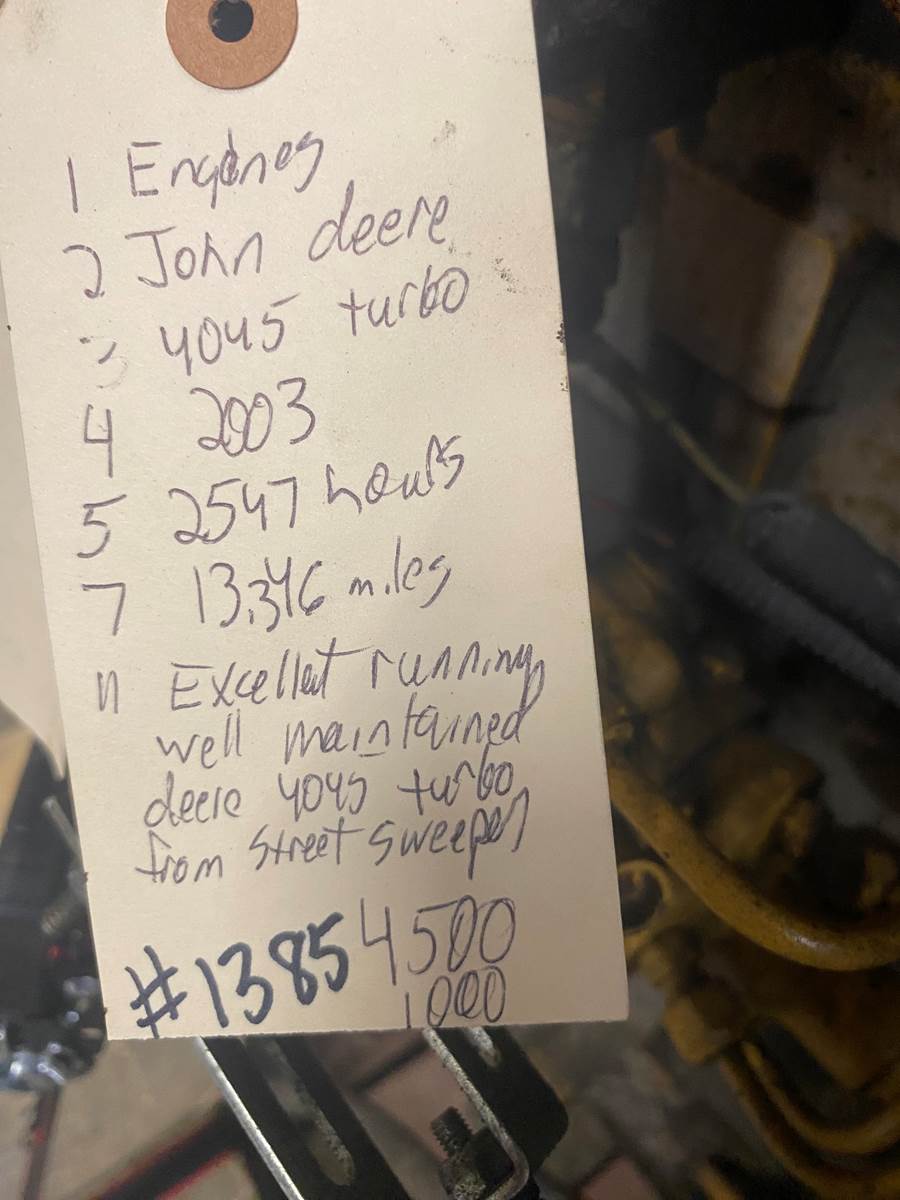 1 Engines
2 John deere
3 4045 turbo
4 2003
5 2547 hours
7 13,346 miles
11 Excellent running
well maintained
deere 4045 turbo
from street sweeper
#1385 4500
1000